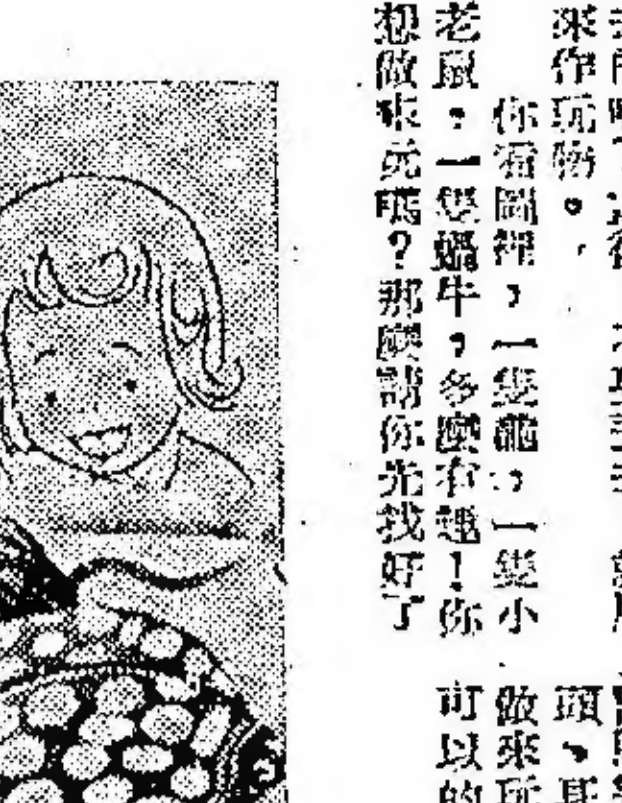 來作玩物。
你看圖裡,一隻龜,一隻小
老鼠,一隻蝸牛,多麼有趣!你
想做來玩嗎?那麼請你先找好了
頭,耳
做來玩
可以的